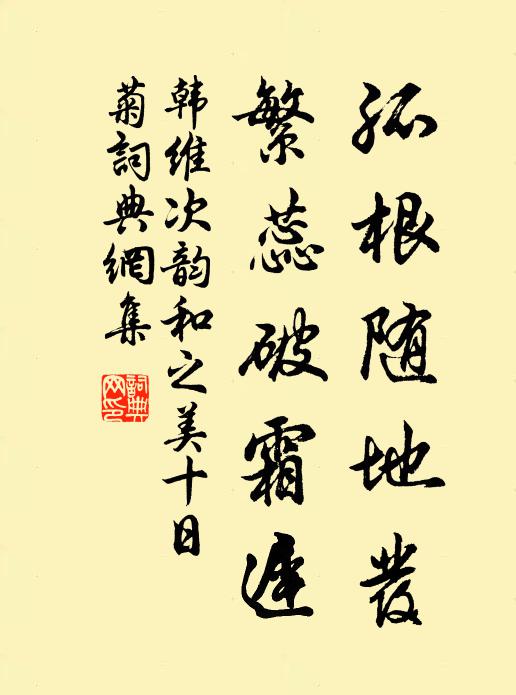 孤根随地發
繁蕊破霜遲
韩維次韵和之美十日
菊詞典網集
詞典
网印